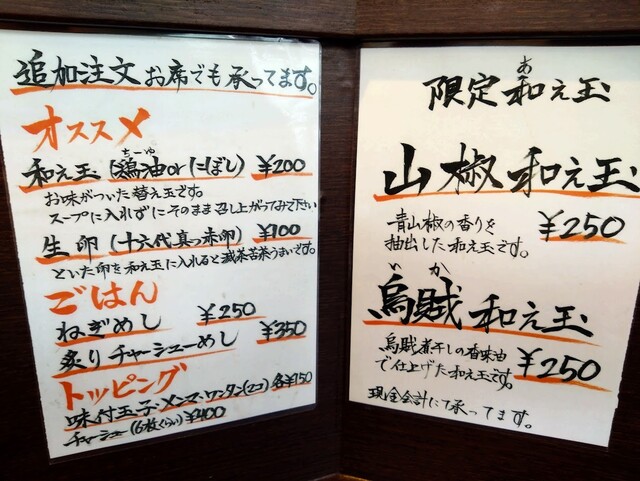 追加注文 お席でも承ってます。
オススメ
和え玉(鶏油orにぼし) ¥200
ちーゆ
お味がついた替え玉です。
スープに入れずにそのまま召し上がってみて下さい
生卵(十六代真っ赤卵) ¥100
といた卵を和え玉に入れると滅茶苦茶うまいです。
ごはん
ねぎめし ¥250
炙りチャーシューめし ¥350
トッピング
味付玉子・メンマ・ワンタン(2コ) 各¥150
チャーシュー(6枚くらい)¥400
限定 和え玉
あ
山椒 和え玉
青山椒の香りを
抽出した和え玉です。 ¥250
いか
烏賊 和え玉
烏賊煮干しの香味油
で仕上げた和え玉です。 ¥250
現金会計にて承ってます。